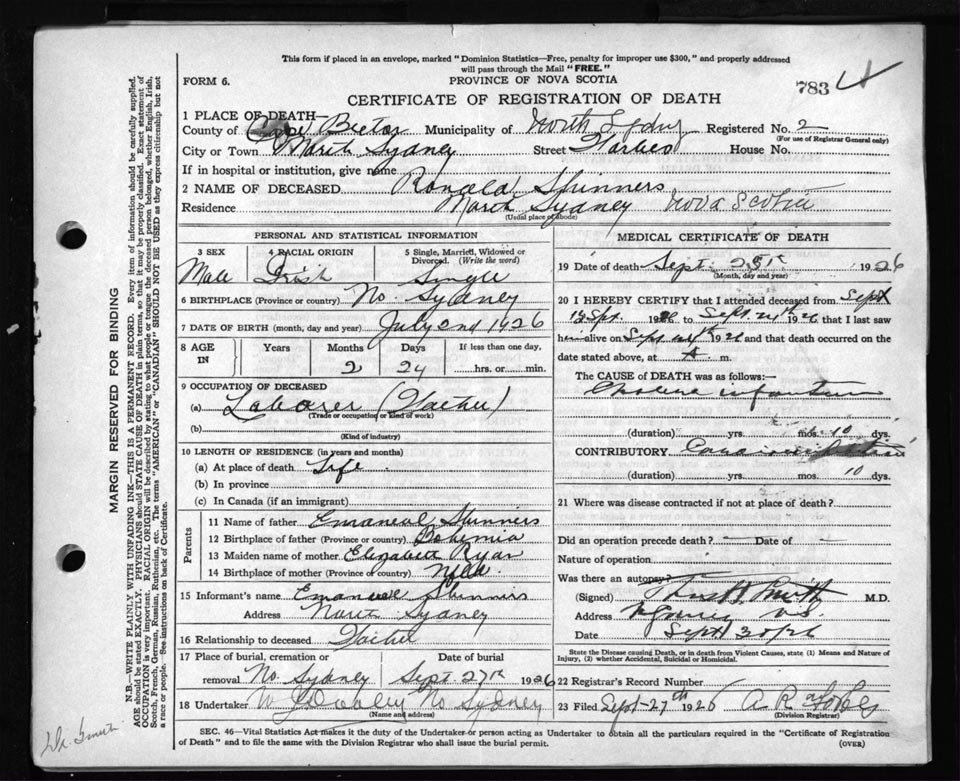 This form if placed in an envelope, marked "Dominion Statistics—Free, penalty for improper use $300," and properly addressed
will pass through the Mail "FREE."
FORM 6.
PROVINCE OF NOVA SCOTIA
783
CERTIFICATE OF REGISTRATION OF DEATH
1 PLACE OF DEATH—
County of Cape Breton Municipality of North Sydney Registered No. 2
(For use of Registrar General only)
City or Town North Sydney Street House No.
If in hospital or institution, give name
2 NAME OF DECEASED Ronald Skinners
Residence North Sydney Nova Scotia
(Usual place of abode)
PERSONAL AND STATISTICAL INFORMATION
3 SEX 4 RACIAL ORIGIN 5 Single, Married, Widowed or Divorced. (Write the word)
Male Irish Single
6 BIRTHPLACE (Province or country) No. Sydney
7 DATE OF BIRTH (month, day and year) July 2nd 1926
8 AGE IN Years Months Days If less than one day,
2 24 hrs. or min.
9 OCCUPATION OF DECEASED
(a) Laborer (Father)
(Trade or occupation or kind of work)
(b)
(Kind of industry)
10 LENGTH OF RESIDENCE (in years and months)
(a) At place of death Life
(b) In province
(c) In Canada (if an immigrant)
Parents
11 Name of father Skinners
12 Birthplace of father (Province or country) Bohemia
13 Maiden name of mother Elizabeth Ryan
14 Birthplace of mother (Province or country) Nfld.
15 Informant's name Skinners
Address North Sydney
16 Relationship to deceased Father
17 Place of burial, cremation or removal Date of burial
No. Sydney Sept. 27th 1926
18 Undertaker No Sydney
(Name and address)
MEDICAL CERTIFICATE OF DEATH
19 Date of death Sept. 1926
(Month, day and year)
20 I HEREBY CERTIFY that I attended deceased from Sept
to Sept. 24th 1926 that I last saw
h alive on Sept 24th 1926 and that death occurred on the
date stated above, at m.
The CAUSE of DEATH was as follows:—
Cholera infantum
(duration) yrs. mos. 10 dys.
CONTRIBUTORY
(duration) yrs. mos. 10 dys.
21 Where was disease contracted if not at place of death?
Did an operation precede death? — Date of —
Nature of operation
Was there an autopsy?
(Signed) M.D.
Address
Date Sept 30/26
State the Disease causing Death, or in death from Violent Causes, state (1) Means and Nature of
Injury, (2) whether Accidental, Suicidal or Homicidal.
22 Registrar's Record Number
23 Filed Sept-27th 1926
(Division Registrar)
SEC. 46—Vital Statistics Act makes it the duty of the Undertaker or person acting as Undertaker to obtain all the particulars required in the "Certificate of Registration
of Death" and to file the same with the Division Registrar who shall issue the burial permit. (OVER)
MARGIN RESERVED FOR BINDING
N.B.—WRITE PLAINLY WITH UNFADING INK—THIS IS A PERMANENT RECORD. Every item of information should be carefully supplied.
AGE should be stated EXACTLY. PHYSICIANS should STATE CAUSE OF DEATH in plain terms, so that it may be properly classified. Exact statement of
OCCUPATION is very important. RACIAL ORIGIN will be described by stating to what people or tongue the deceased person belonged, whether English, Irish,
Scotch, French, German, Russian, Ruthenian, etc. The terms "AMERICAN" or "CANADIAN" SHOULD NOT BE USED as they express citizenship but not
a race or people. See instructions on back of Certificate.
Dr. Smith